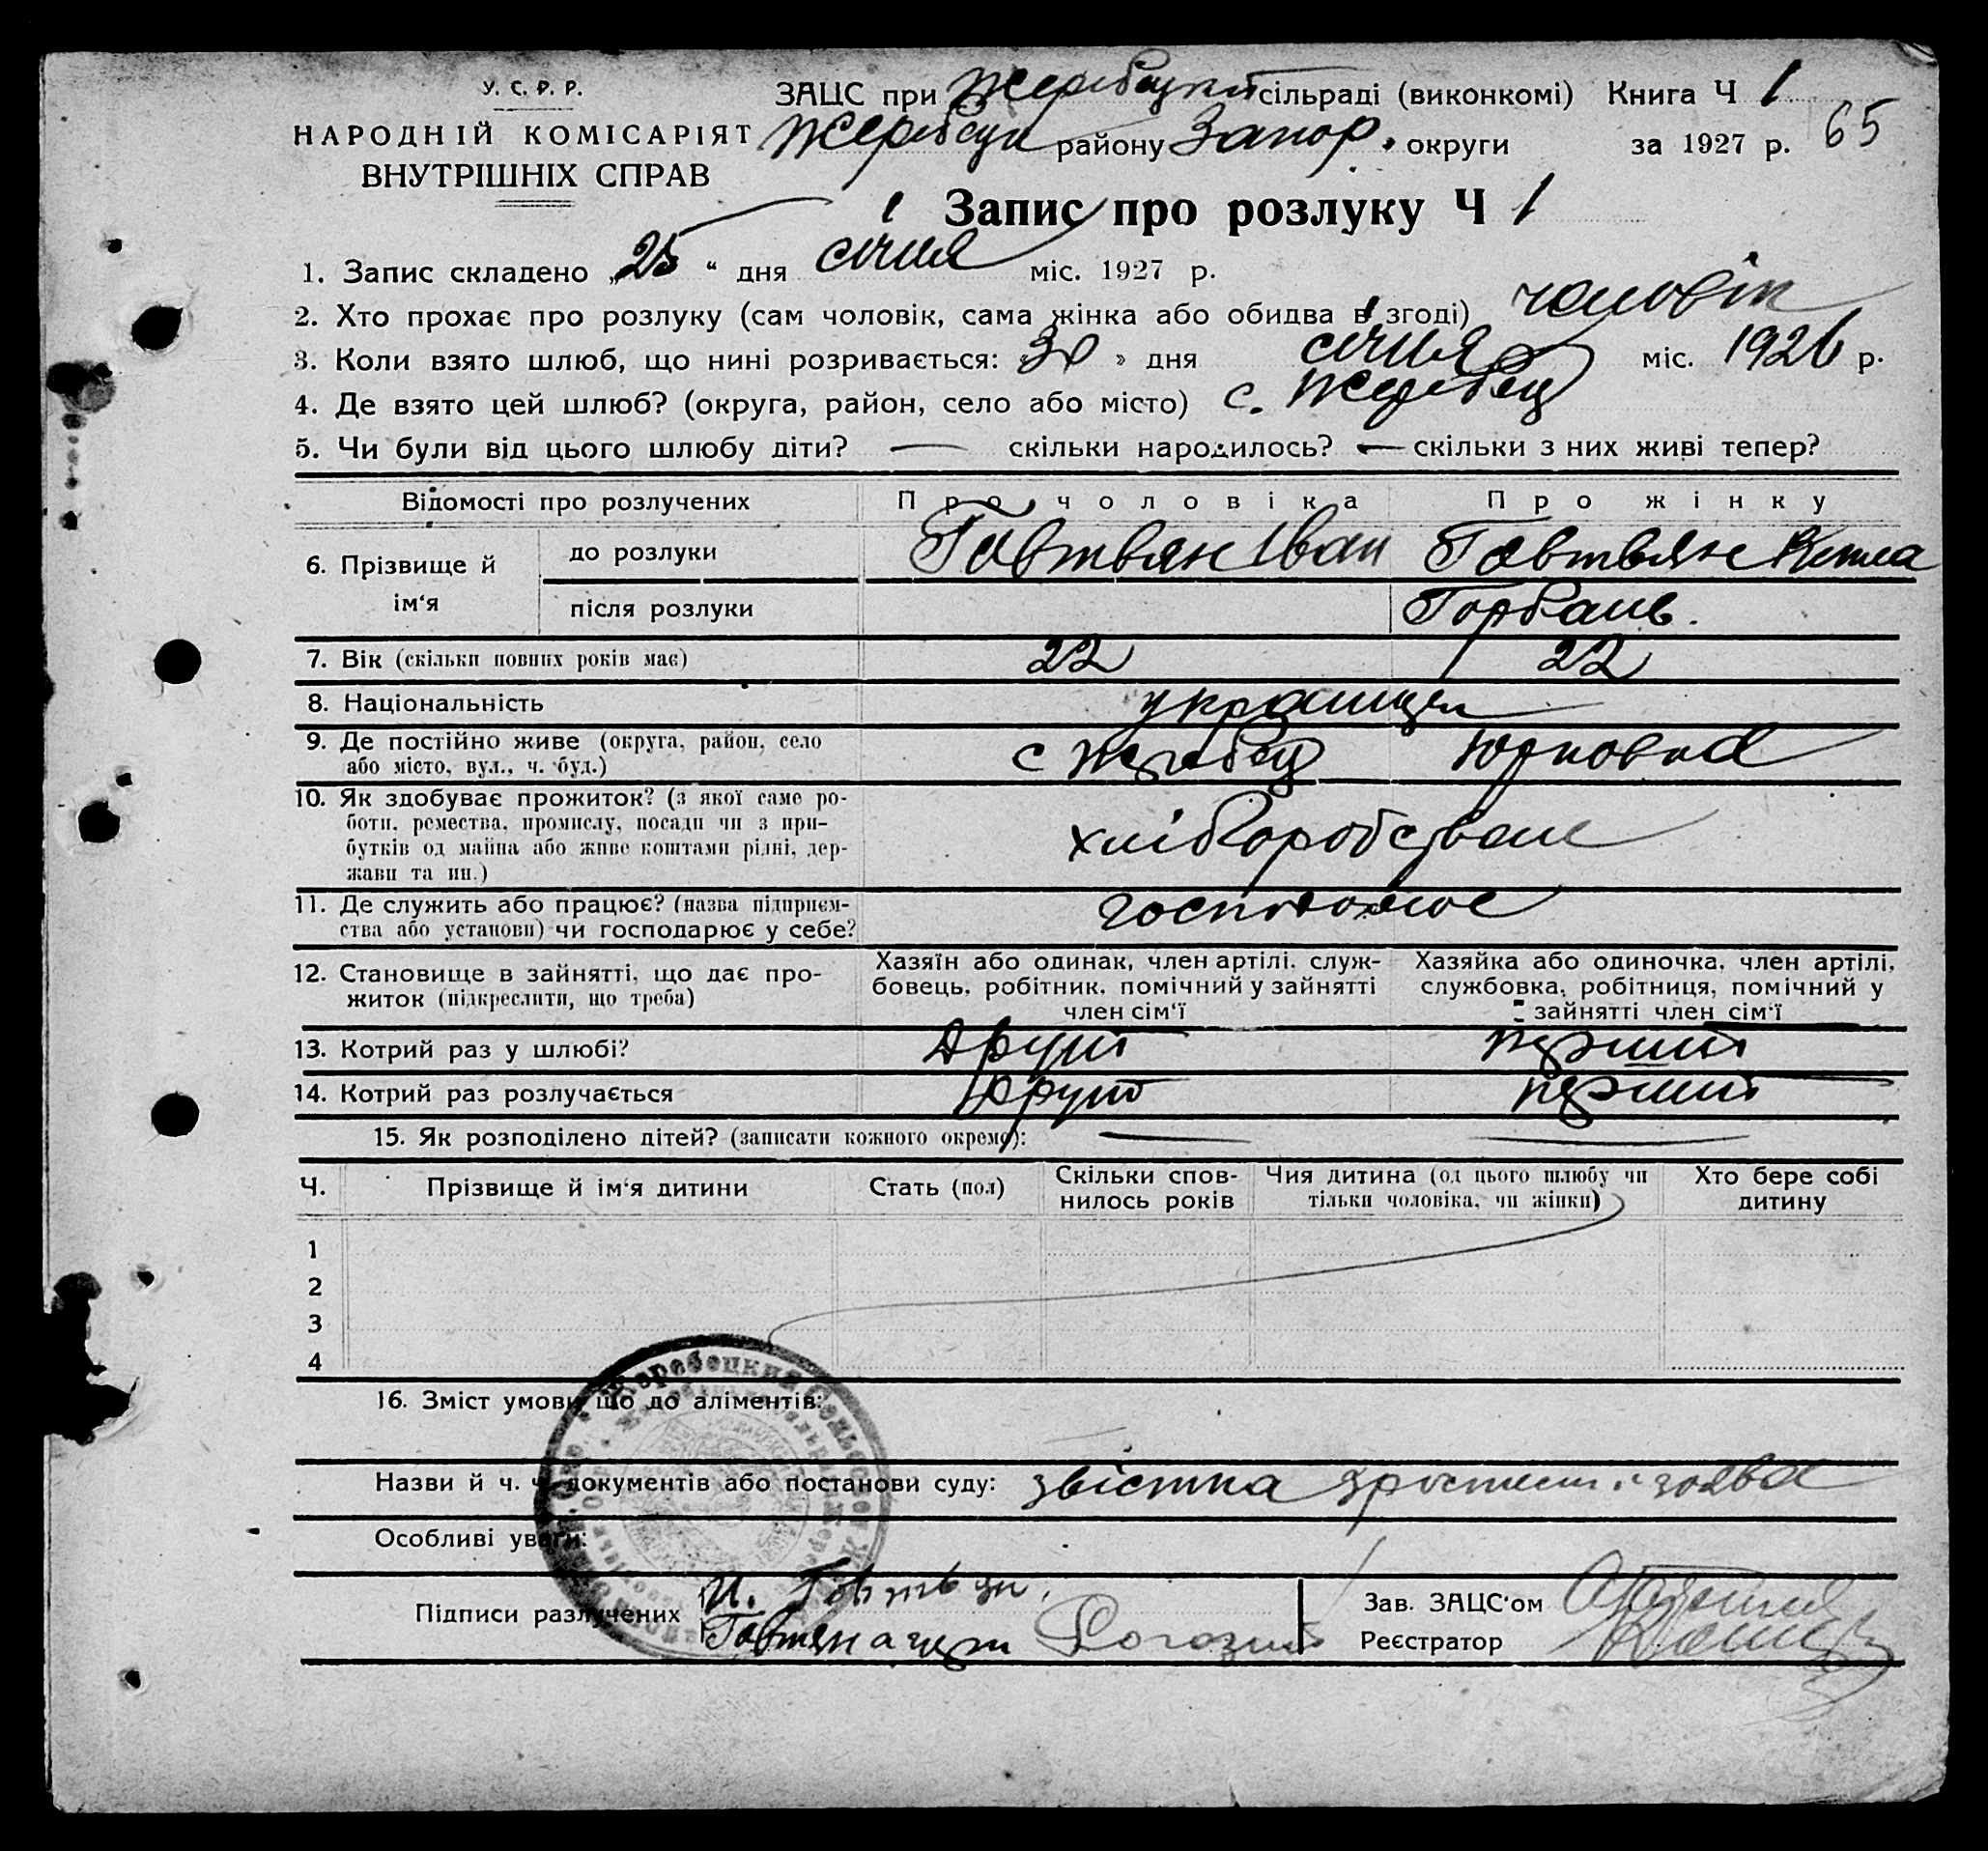 У. С. Р. Р.
НАРОДНІЙ КОМІСАРІЯТ
ВНУТРІШНІХ СПРАВ
ЗАЦС при Жеребецкій сільраді (виконкомі) Книга Ч 1
Жеребецк району Запор. округи за 1927 р. 65
Запис про розлуку Ч 1
1. Запис складено „25“ дня січня міс. 1927 р.
2. Хто прохає про розлуку (сам чоловік, сама жінка або обидва в згоді) чоловік
3. Коли взято шлюб, що нині розривається: „30» дня січня міс. 1926 р.
4. Де взято цей шлюб? (округа, район, село або місто) с. Жеребец
5. Чи були від цього шлюбу діти? — скільки народилось? — скільки з них живі тепер?
Відомості про розлучених Про чоловіка Про жінку
6. Прізвище й ім‘я до розлуки Говтвян Іван Говтвян
після розлуки Горбань.
7. Вік (скільки повних років має) 22 22
8. Національність украинцы
9. Де постійно живе (округа, район, село
або місто, вул., ч. буд.) с Жеребец Юрковка
10. Як здобуває прожиток? (з якої саме ро-
боти, ремества, промислу, посади чи з при-
бутків од майна або живе коштами рідні, дер-
жави та ин.) хліборобством
11. Де служить або працює? (назва підприєм-
ства або установи) чи господарює у себе?
12. Становище в зайнятті, що дає про-
житок (підкреслити, що треба)
Хазяїн або одинак, член артілі, служ-
бовець, робітник, помічний у зайнятті
член сім‘ї
Хазяйка або одиночка, член артілі,
службовка, робітниця, помічний у
зайнятті член сім‘ї
13. Котрий раз у шлюбі? Другий перший
14. Котрий раз розлучається Другий перший
15. Як розподілено дітей? (записати кожного окремо): — —
Ч. Прізвище й ім‘я дитини Стать (пол) Скільки спов-
нилось років Чия дитина (од цього шлюбу чи
тільки чоловіка, чи жінки) Хто бере собі
дитину
1
2
3
4
16. Зміст умови що до аліментів:
Назви й ч. ч. документів або постанови суду: звістка заява
Особливі уваги:
Підписи разлучених И. Говтвян.
Рогозин
Зав. ЗАЦС‘ом
Реєстратор